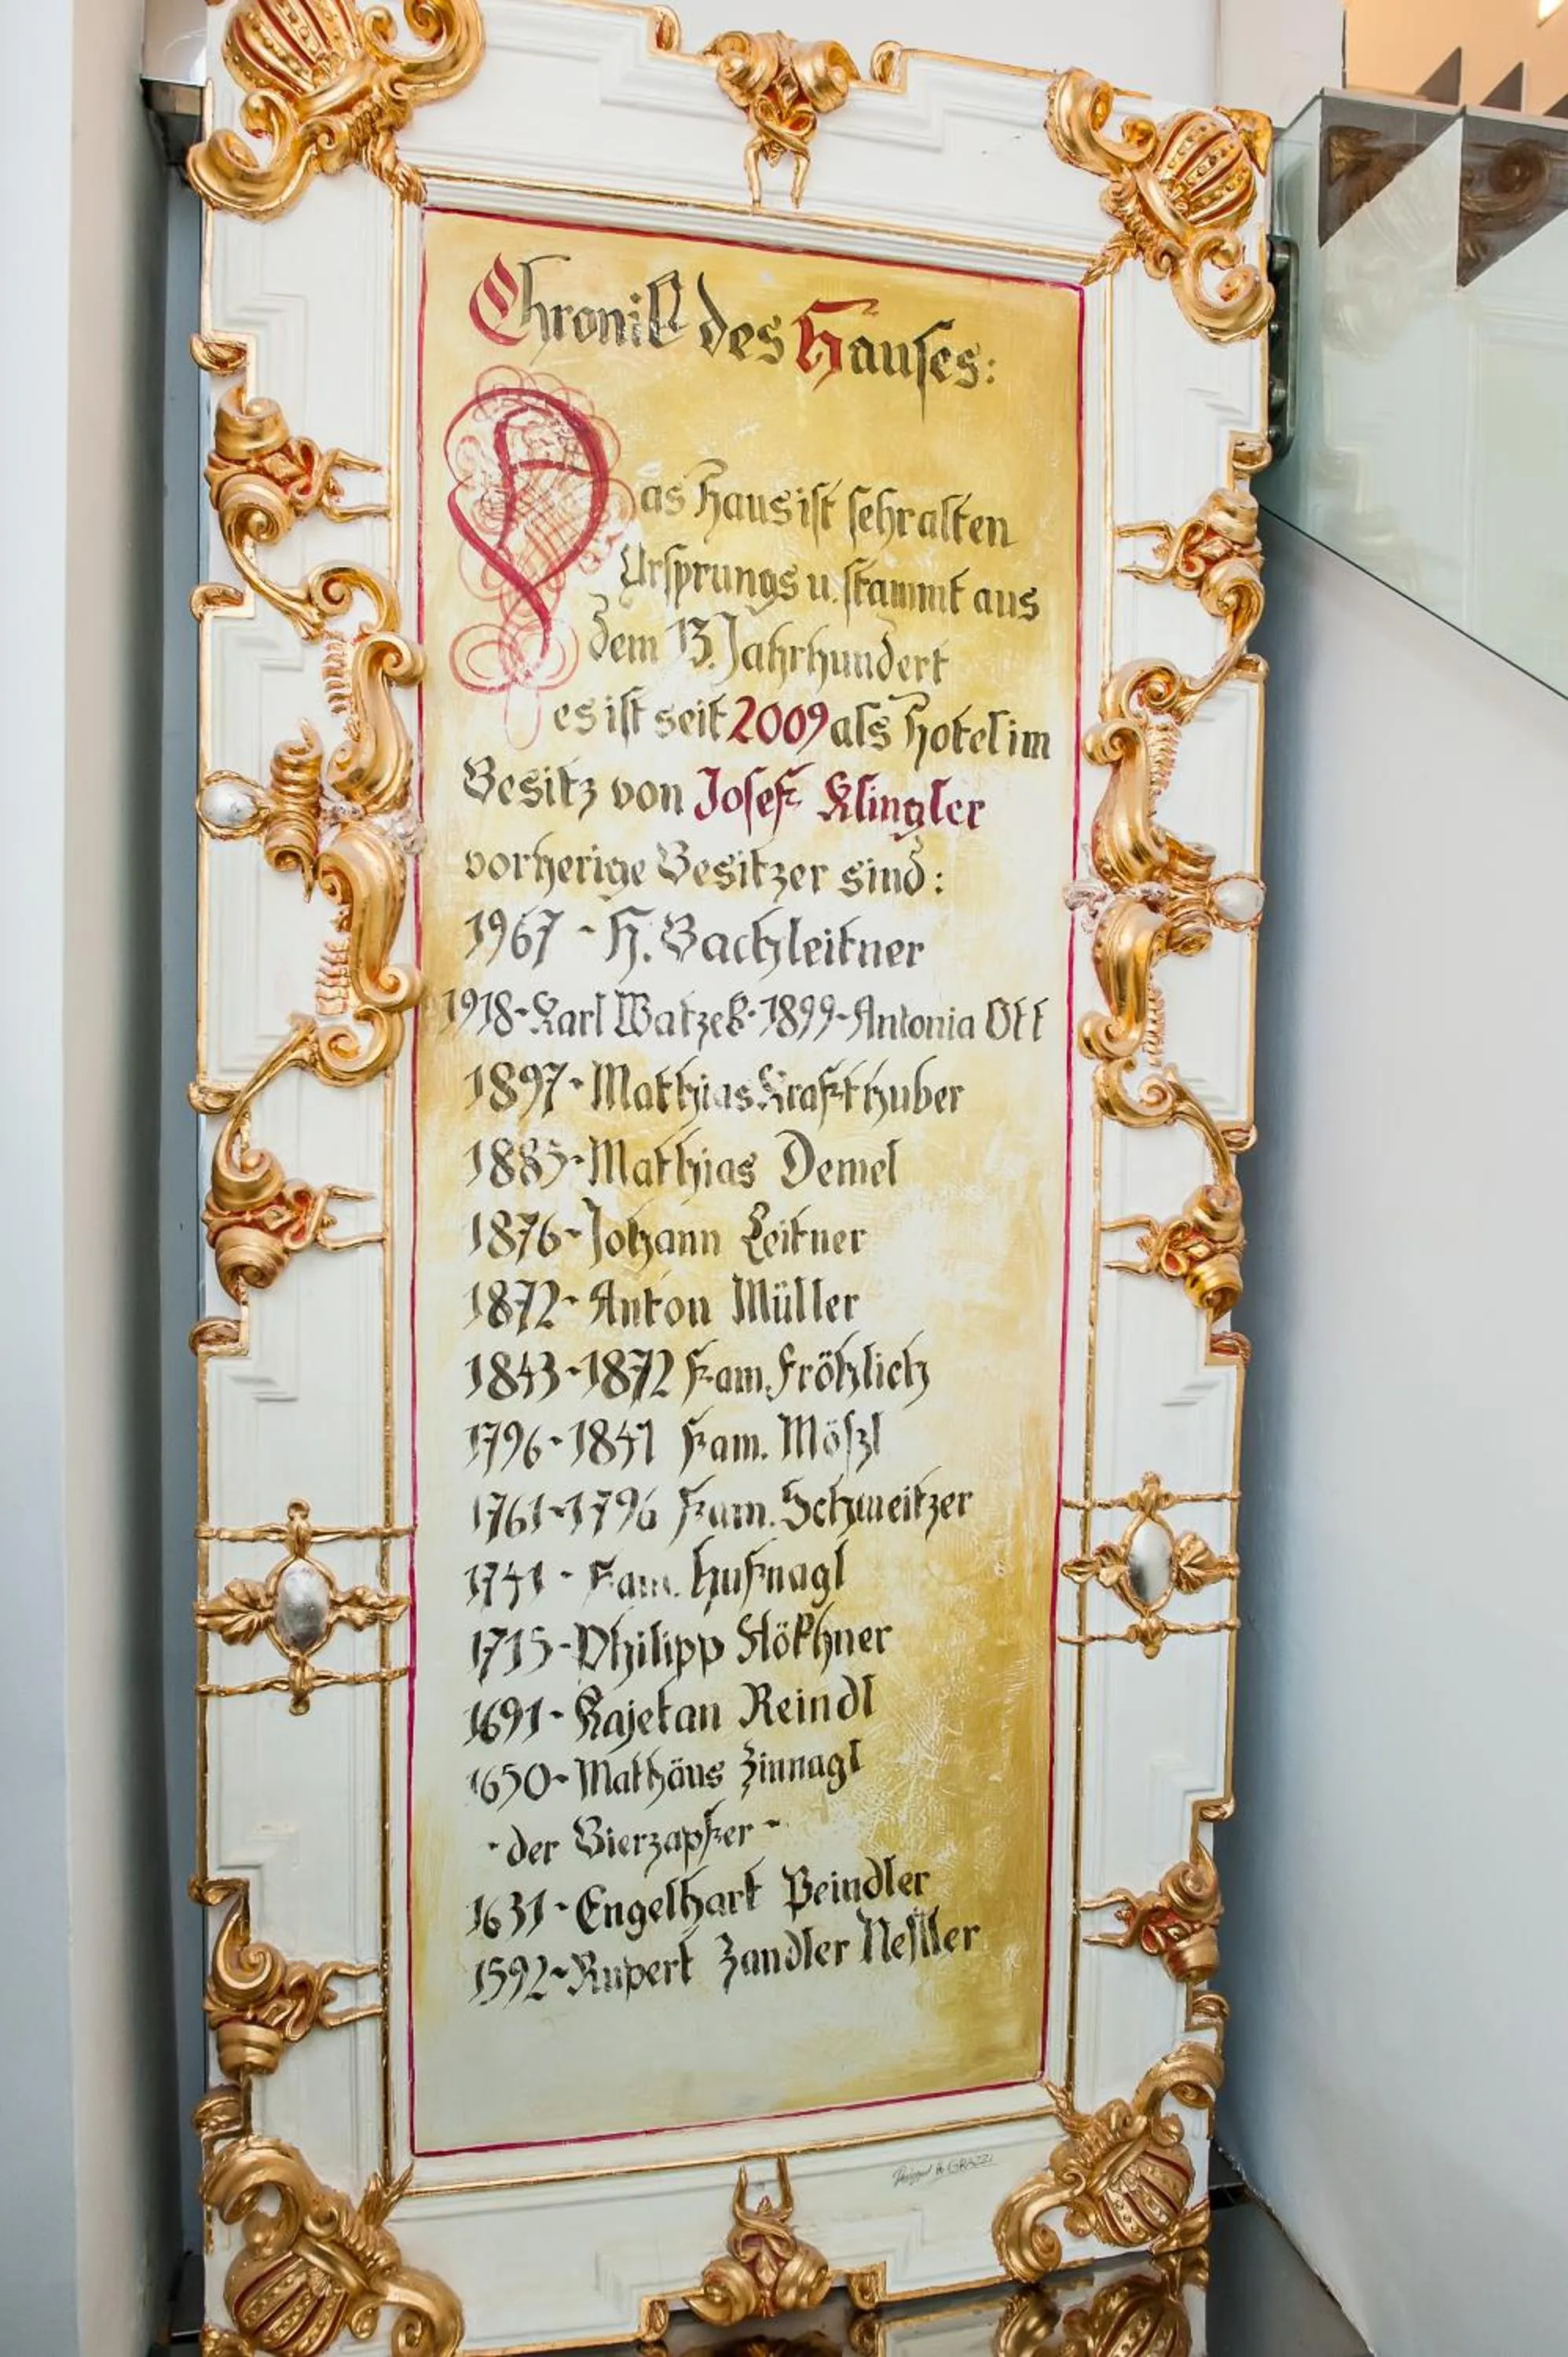 Chronik des Hauses:
Das Haus ist sehr alten
Ursprungs u. stammt aus
dem 13. Jahrhundert
es ist seit 2009 als Hotel im
Besitz von Josef Klingler
vorherige Besitzer sind:
1967 - H. Bachleitner
1918-Karl Watzek·1899-Antonia Ott
1897-Matthias Krafthuber
1885-Mathias Demel
1876-Johann Leitner
1872-Anton Müller
1843-1872 Fam. Fröhlich
1796-1841 Fam. Mößl
1761-1796 Fam. Schweitzer
1741 - Fam. Hufnagl
1715-Philipp Stökhner
1691-Kajetan Reindl
1650-Mathäus Zinnagl
-der Bierzapfer-
1631-Engelhart Peindler
1592-Rupert Zandler Nestler
GRAZZI